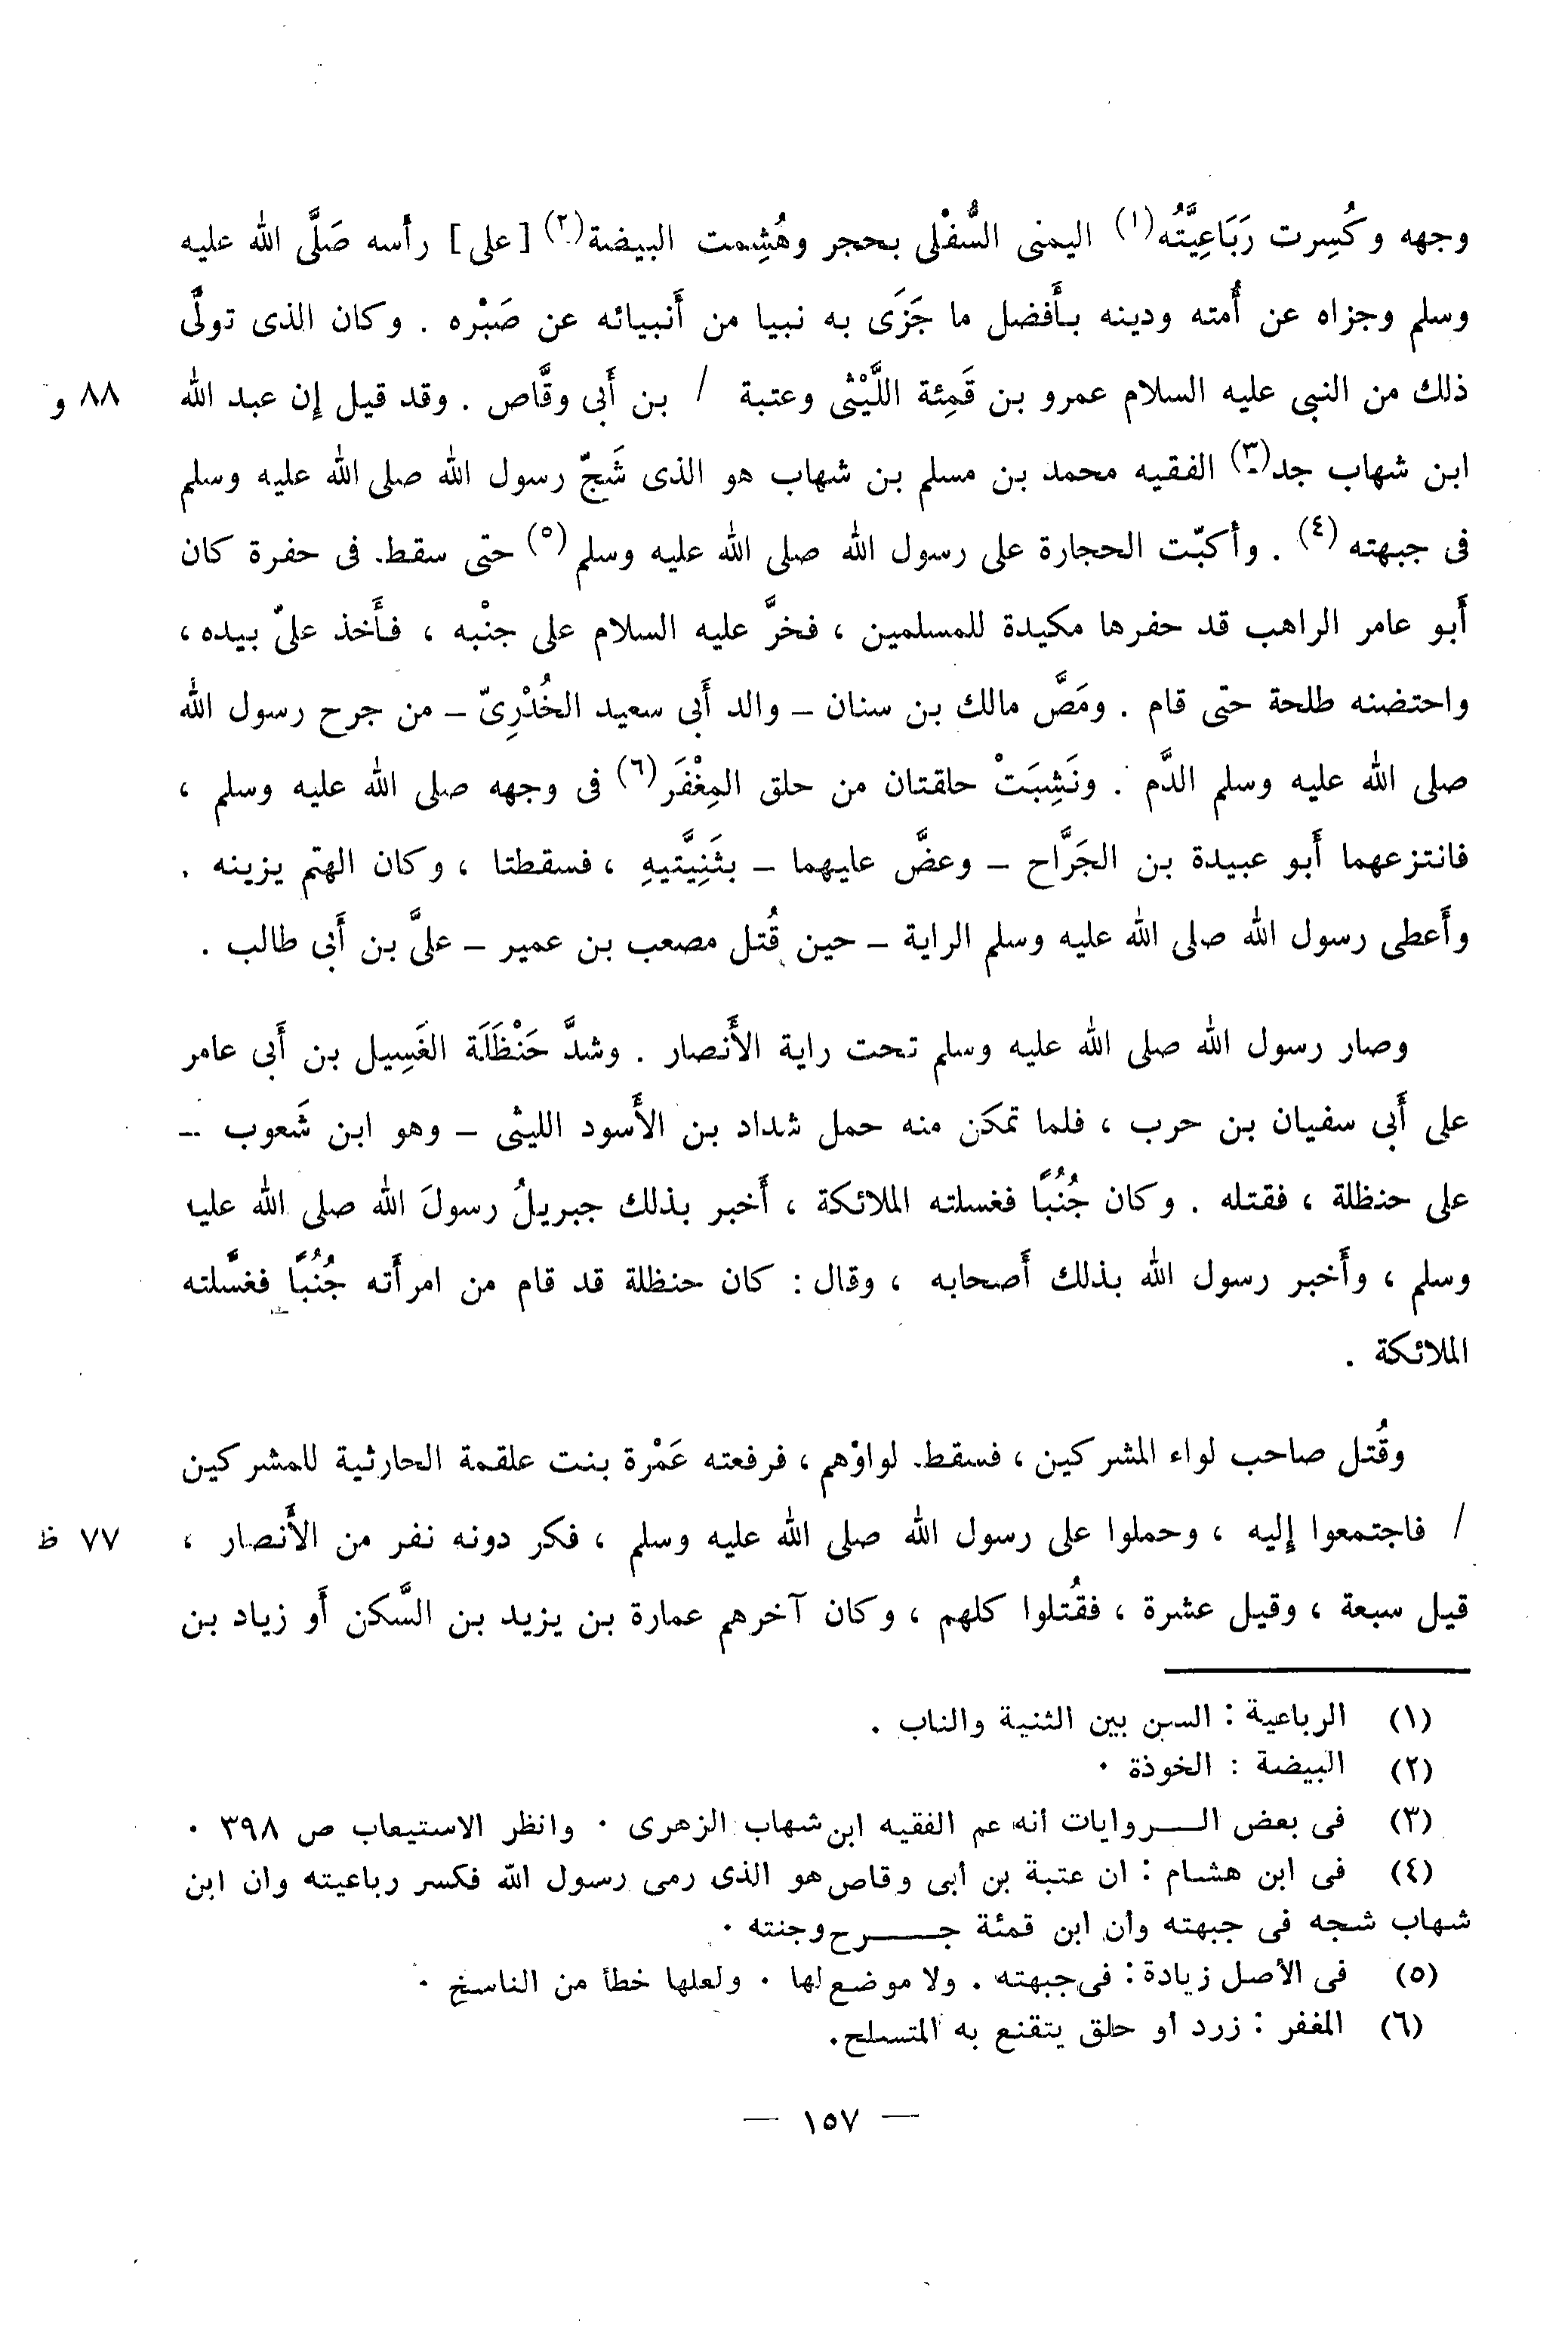 وجهه وكُسِرت رَبَاعِيَّتُه(١) اليمنى السُّفْلى بحجر وهُشِمت البيضة(٢) [على] رأسه صَلَّى الله عليه
وسلم وجزاه عن أُمته ودينه بأَفضل ما جَزَى به نبيا من أَنبيائه عن صَبْره . وكان الذى تولَّى
ذلك من النبى عليه السلام عمرو بن قَمِئة اللَّيْثى وعتبة / بن أَبى وقَّاص . وقد قيل إن عبد الله ٨٨ و
ابن شهاب جد(٣) الفقيه محمد بن مسلم بن شهاب هو الذى شَجّ رسول الله صلى الله عليه وسلم
فى جبهته (٤) . وأكبّت الحجارة على رسول الله صلى الله عليه وسلم (٥) حتى سقط. فى حفرة كان
أَبو عامر الراهب قد حفرها مكيدة للمسلمين ، فخرَّ عليه السلام على جنْبه ، فأَخذ علىّ بيده ،
واحتضنه طلحة حتى قام . ومَصَّ مالك بن سنان – والد أَبى سعيد الخُدْرِىّ – من جرح رسول الله
صلى الله عليه وسلم الدَّم . ونَشِبَتْ حلقتان من حلق المِغْفَر(٦) فى وجهه صلى الله عليه وسلم ،
فانتزعهما أَبو عبيدة بن الجَرَّاح – وعضَّ عليهما – بثَنِيَّتيهِ ، فسقطتا ، وكان الهتم يزينه .
وأَعطى رسول الله صلى الله عليه وسلم الراية – حين قُتل مصعب بن عمير – علىَّ بن أَبى طالب .
وصار رسول الله صلى الله عليه وسلم تحت راية الأَنصار . وشدَّ حَنْظَلَة الغَسِيل بن أَبى عامر
على أَبى سفيان بن حرب ، فلما تمكن منه حمل شداد بن الأَسود الليثى – وهو ابن شَعوب –
على حنظلة ، فقتله . وكان جُنُبًا فغسلته الملائكة ، أَخبر بذلك جبريلُ رسولَ الله صلى الله عليه
وسلم ، وأَخبر رسول الله بذلك أَصحابه ، وقال : كان حنظلة قد قام من امرأَته جُنُبًا فغسَّلته
الملائكة .
وقُتل صاحب لواء المشركين ، فسقط. لواؤهم ، فرفعته عَمْرة بنت علقمة الحارثية للمشركين
/ فاجتمعوا إليه ، وحملوا على رسول الله صلى الله عليه وسلم ، فكر دونه نفر من الأَنصار ، ٧٧ ظ
قيل سبعة ، وقيل عشرة ، فقُتلوا كلهم ، وكان آخرهم عمارة بن يزيد بن السَّكن أَو زياد بن
(١) الرباعية : السن بين الثنية والناب .
(٢) البيضة : الخوذة .
(٣) فى بعض الـــروايات انه عم الفقيه ابن شهاب الزهرى . وانظر الاستيعاب ص ٣٩٨ .
(٤) فى ابن هشام : ان عتبة بن أبى وقاص هو الذى رمى رسول الله فكسر رباعيته وان ابن
شهاب شجه فى جبهته وأن ابن قمئة جــــرح وجنته .
(٥) فى الأصل زيادة : فى جبهته . ولا موضع لها . ولعلها خطأ من الناسخ .
(٦) المغفر : زرد أو حلق يتقنع به المتسلح.
— ١٥٧ —